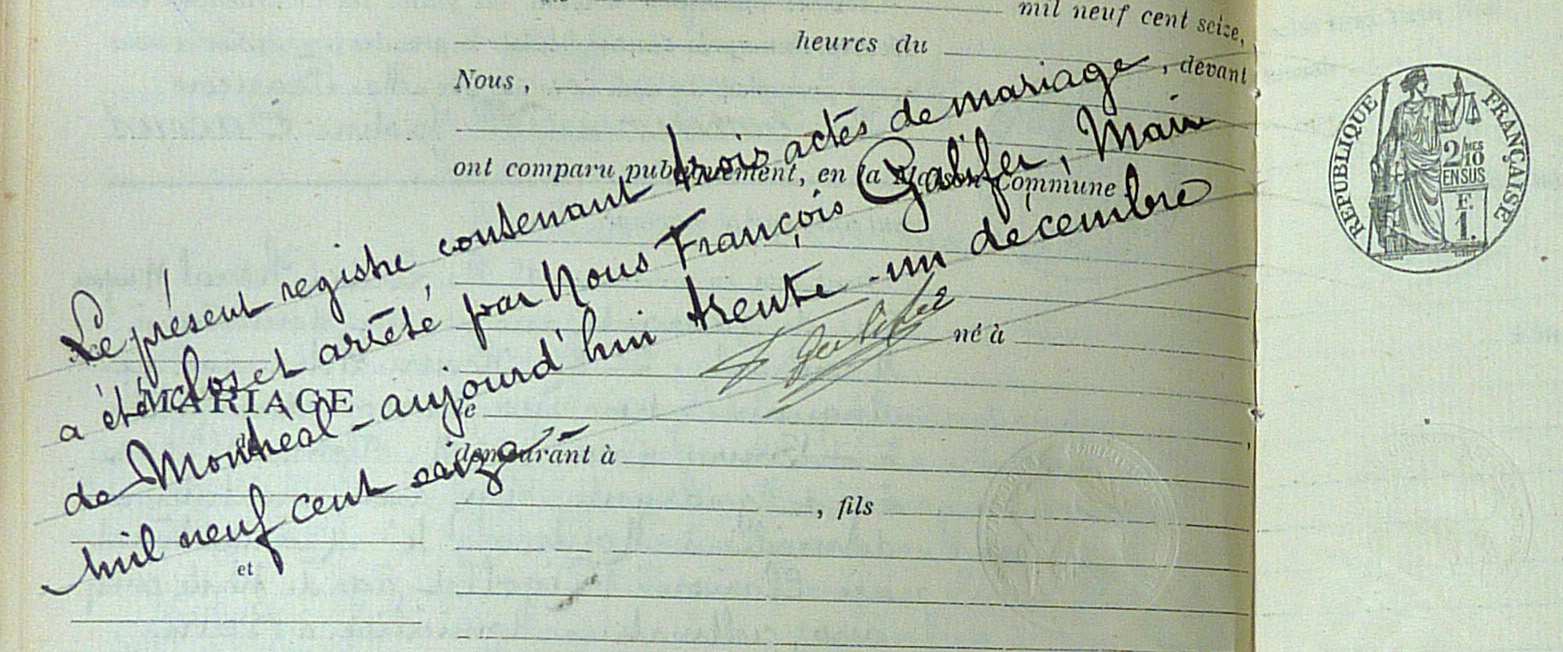 mil neuf cent seize,
heures du , devant
Nous ,
ont comparu publiquement, en la Maison Commune
né à
MARIAGE
demeurant à
, fils
et
Le présent registre, contenant trois actes de mariage
a été clos et arrêté par Nous François Galifer, Maire
de Montréal - aujourd'hui trente-un décembre
mil neuf cent seize
RÉPUBLIQUE FRANÇAISE
2/10
EN SUS
F.
1.